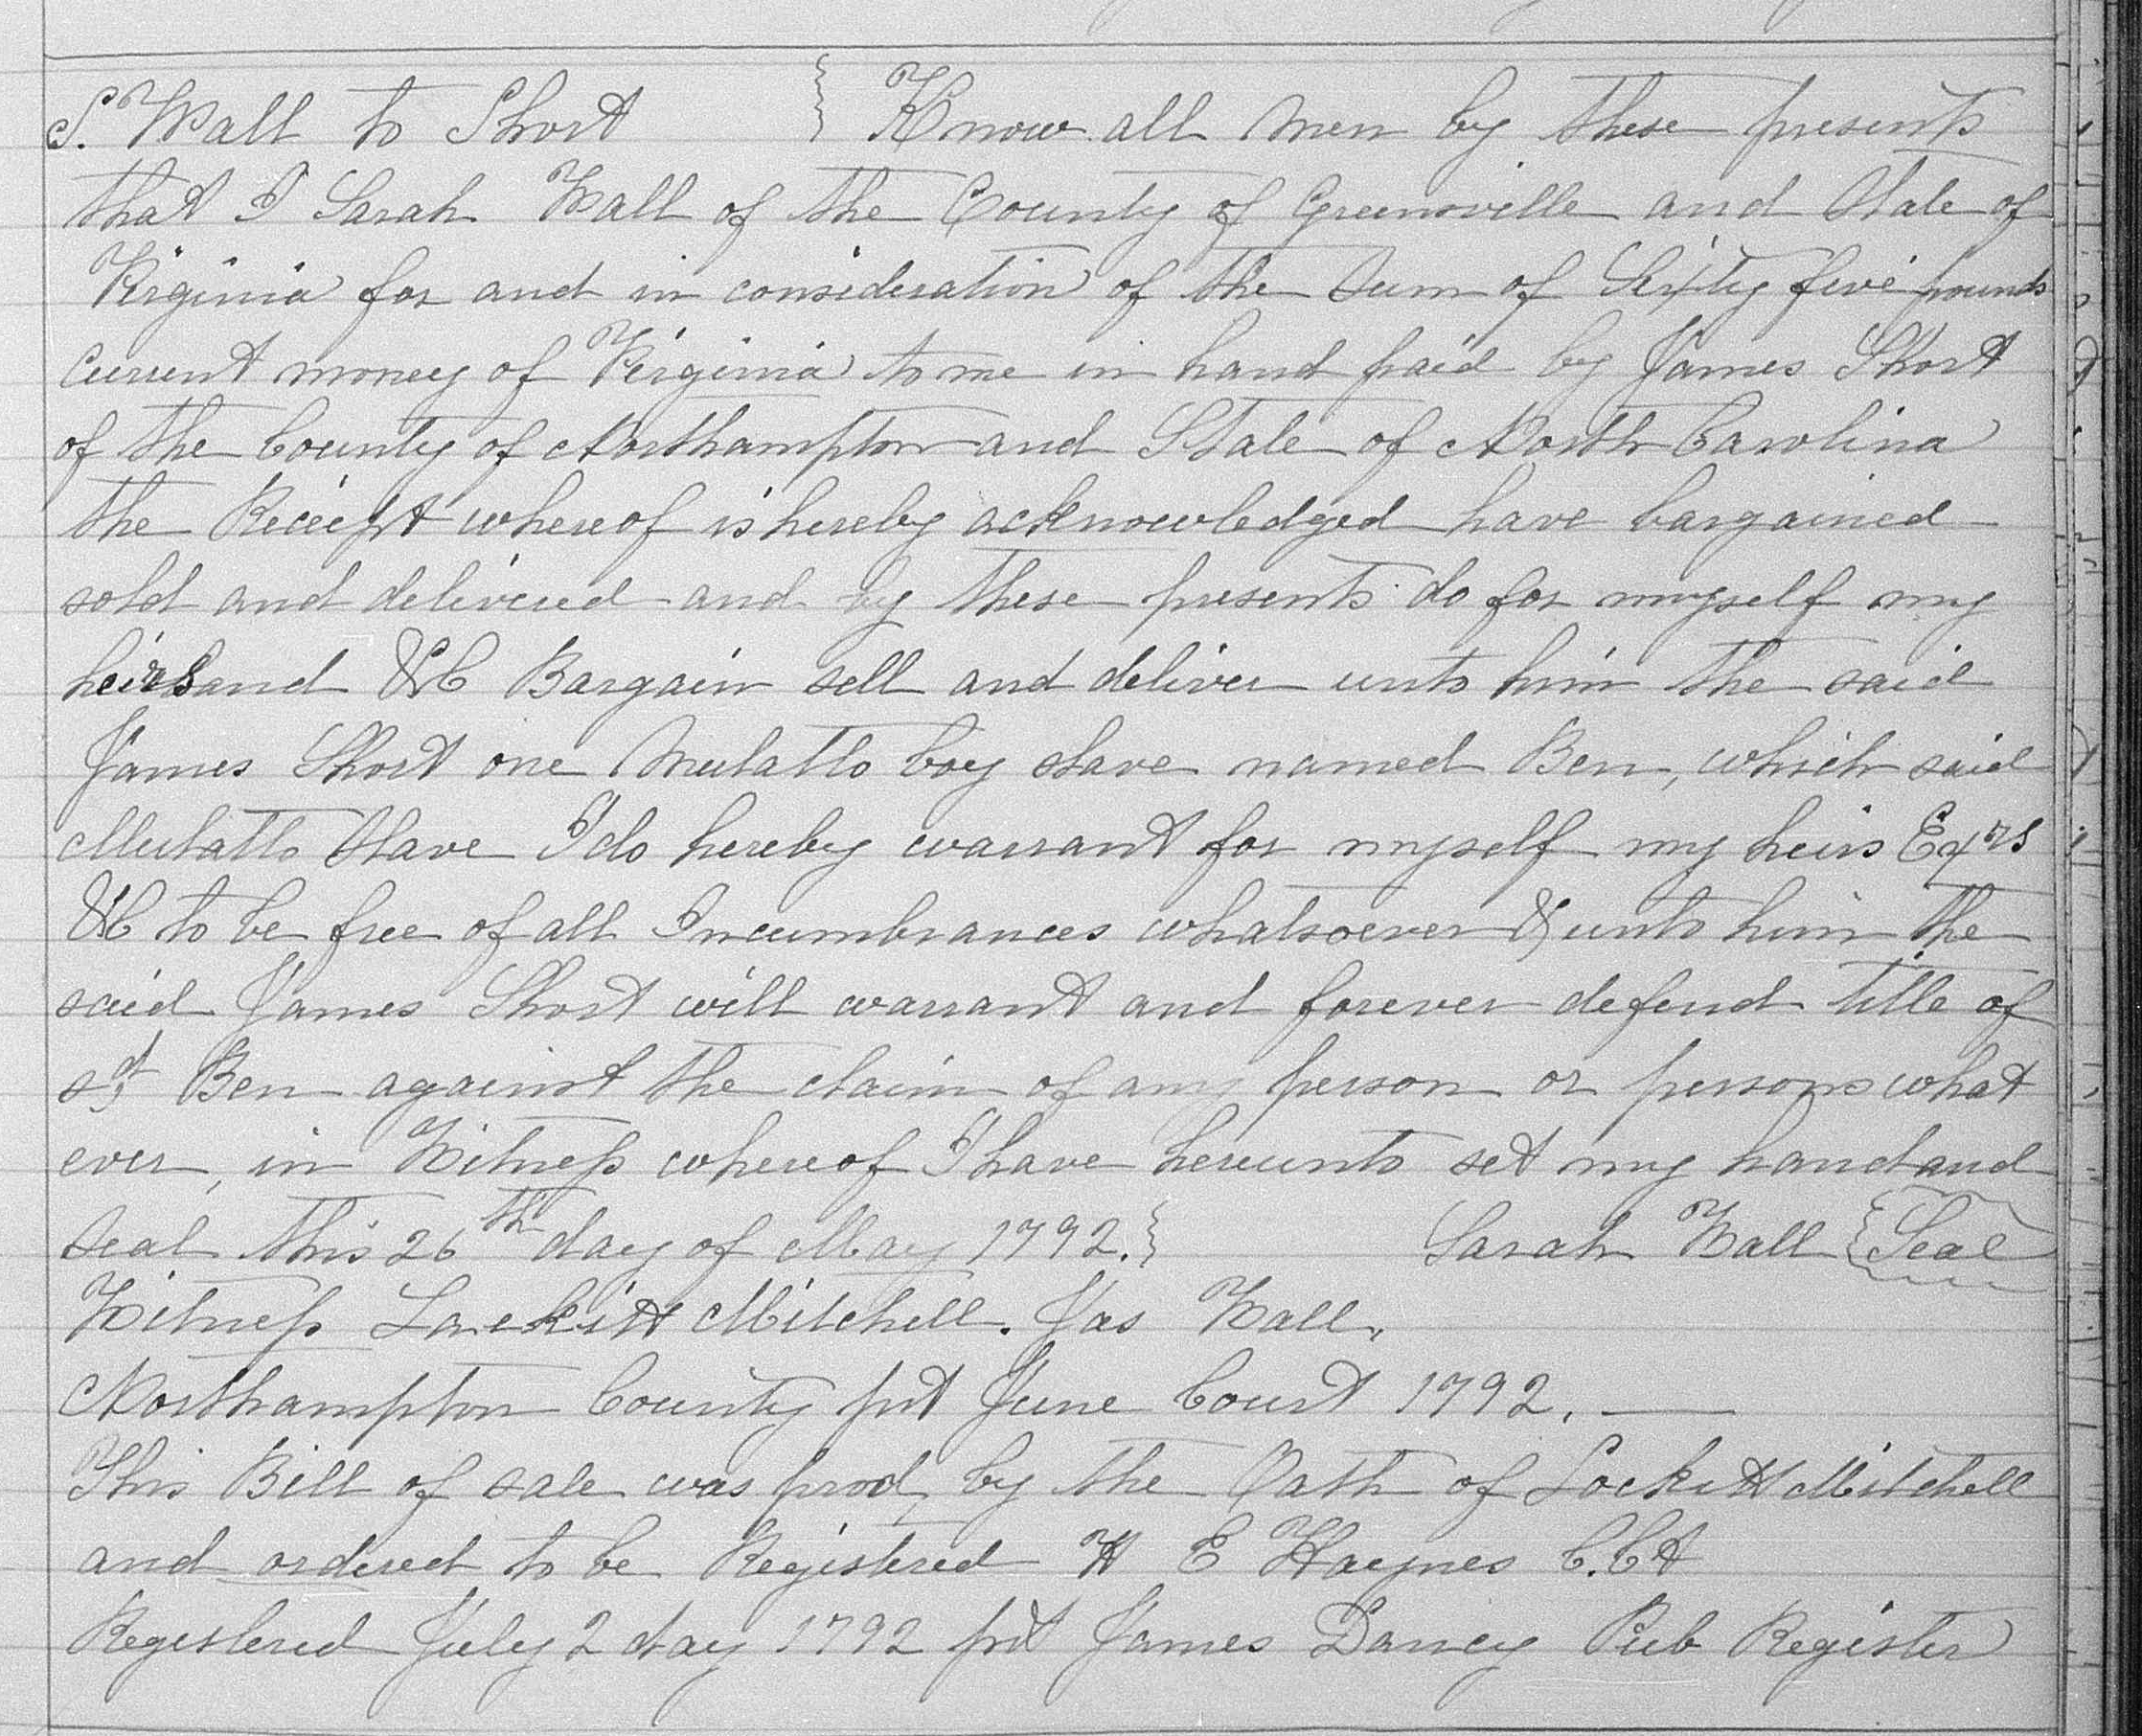 S. Wall to Short } Know all men by these presents
that I Sarah Wall of the County of Greensville and State of
Virginia for and in consideration of the Sum of Sixty five pounds
Current money of Virginia to me in hand paid by James Short
of the County of Northampton and State of North Carolina
the Receipt whereof is hereby acknowledged have bargained
sold and delivered and by these presents do for myself my
heirs and &C Bargain sell and deliver unto him the said
James Short one Mulatto boy slave named Ben, which said
Mulatto Slave I do hereby warrant for myself my heirs Exrs
&C to be free of all Incumbrances whatsoever & unto him the
said James Short will warrant and forever defend title of
sd Ben against the claim of any person or persons what
ever, in Witness whereof I have hereunto set my hand and
seal this 26th day of May 1792. } Sarah Wall {Seal
Witness Lockitt Mitchell. Jas Wall.
Northampton County pst June Court 1792. —
This Bill of sale was provd by the Oath of Lockitt Mitchell
and ordered to be Registered H E Haynes C.Ct
Registered July 2 day 1792 pst James Dancy Pub Register